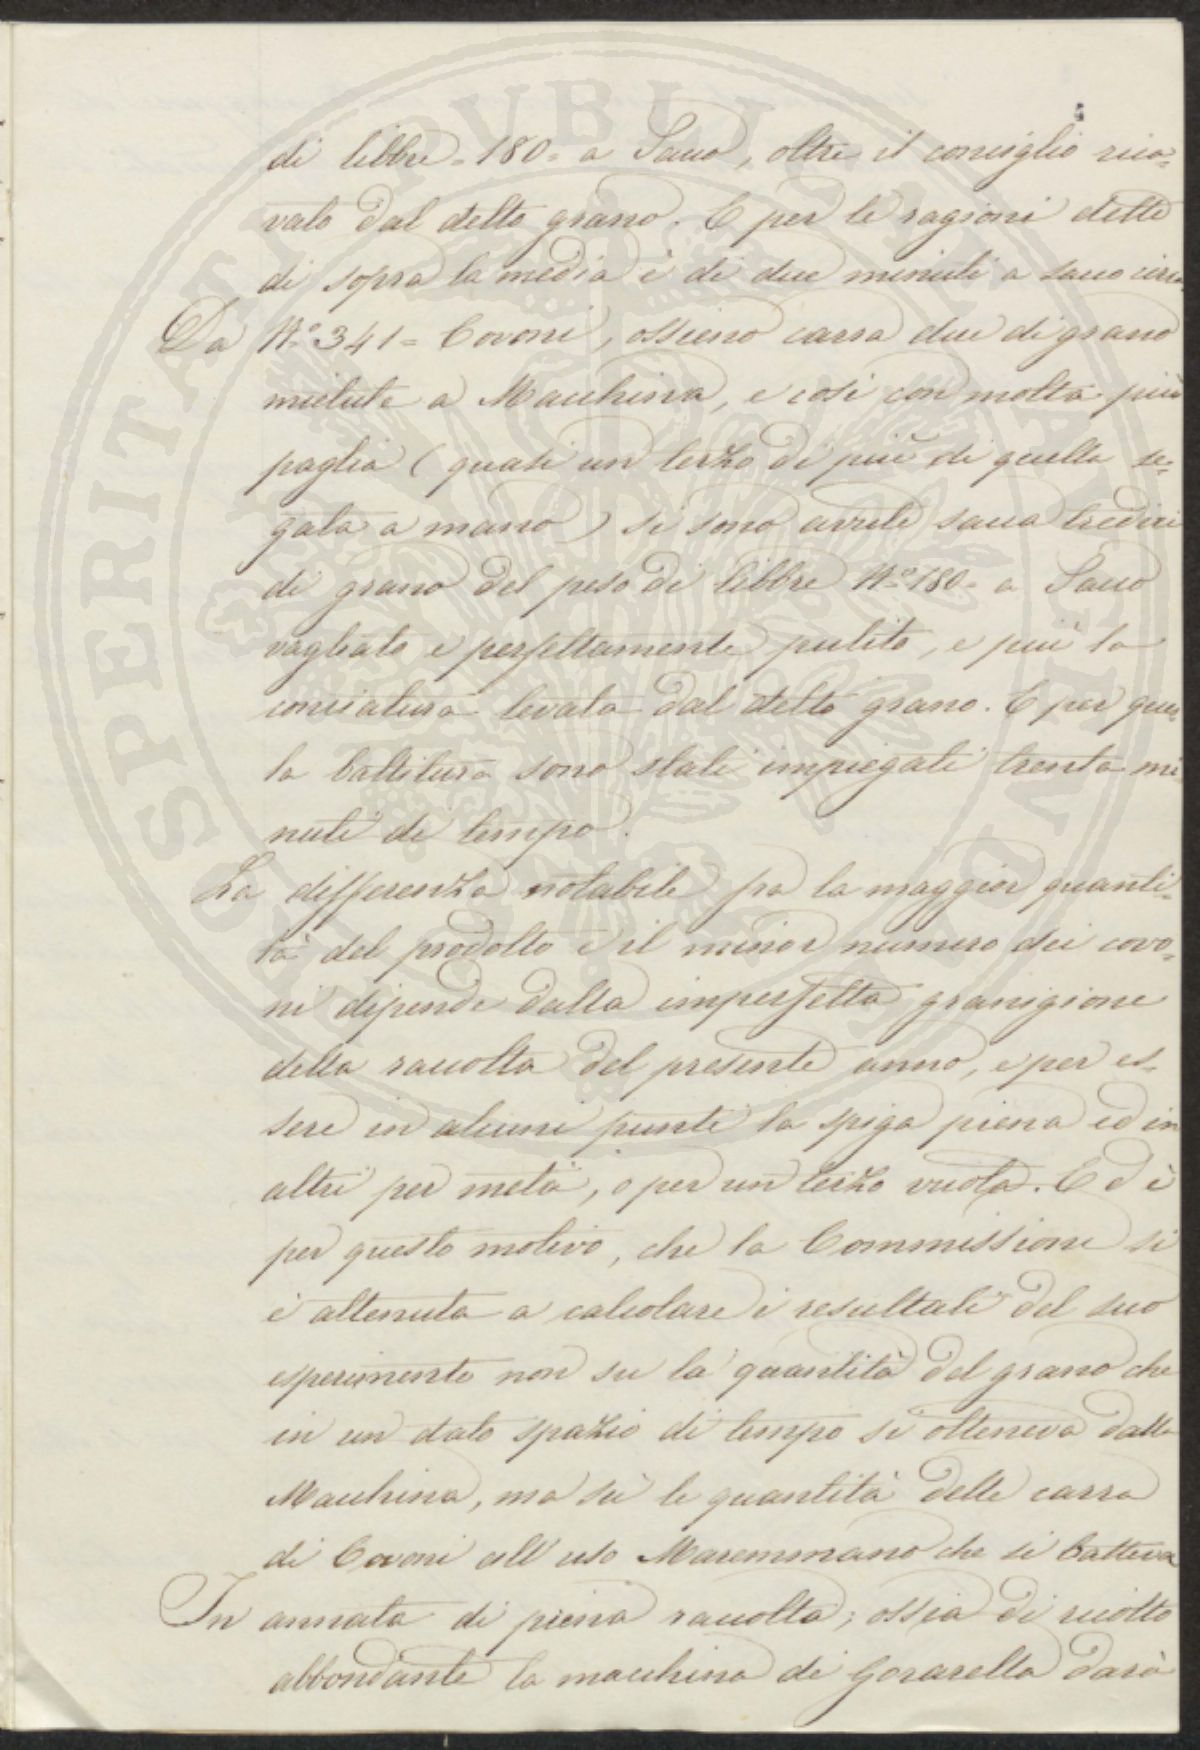 di libbre = 180 = a Sacco, oltre il conciglio rica=
vato dal detto grano. E per le ragioni dette
di sopra la media è di due minuti a sacco circa
Da N.º 341 = Covoni, ossieno carra due di grano
mietute a Macchina, e così con molta più
paglia (quasi un terzo di più di quella se=
gata a mano) si sono avute sacca tredici
di grano del peso di libbre N.º 180 = a Sacco
vagliato e perfettamente pulito, e più la
conciatura levata dal detto grano. E per ques
ta battitura sono stati impiegati trenta mi
nuti di tempo.
La differenza notabile fra la maggior quanti=
tà del prodotto e il minor numero dei covo=
ni dipende dalla imperfetta granigione
della raccolta del presente anno, e per es=
sere in alcuni punti la spiga piena ed in
altri per metà, o per un terzo vuota. Ed è
per questo motivo, che la Commissione si
è attenuta a calcolare i resultati del suo
esperimento non su la quantità del grano che
in un dato spazio di tempo si otteneva dalla
Macchina, ma su le quantità delle carra
di Covoni all'uso Maremmano che si batteva
In annata di piena raccolta; ossia di ricolto
abbondante la macchina di Gorarella darà
SPERITATI PVBLI